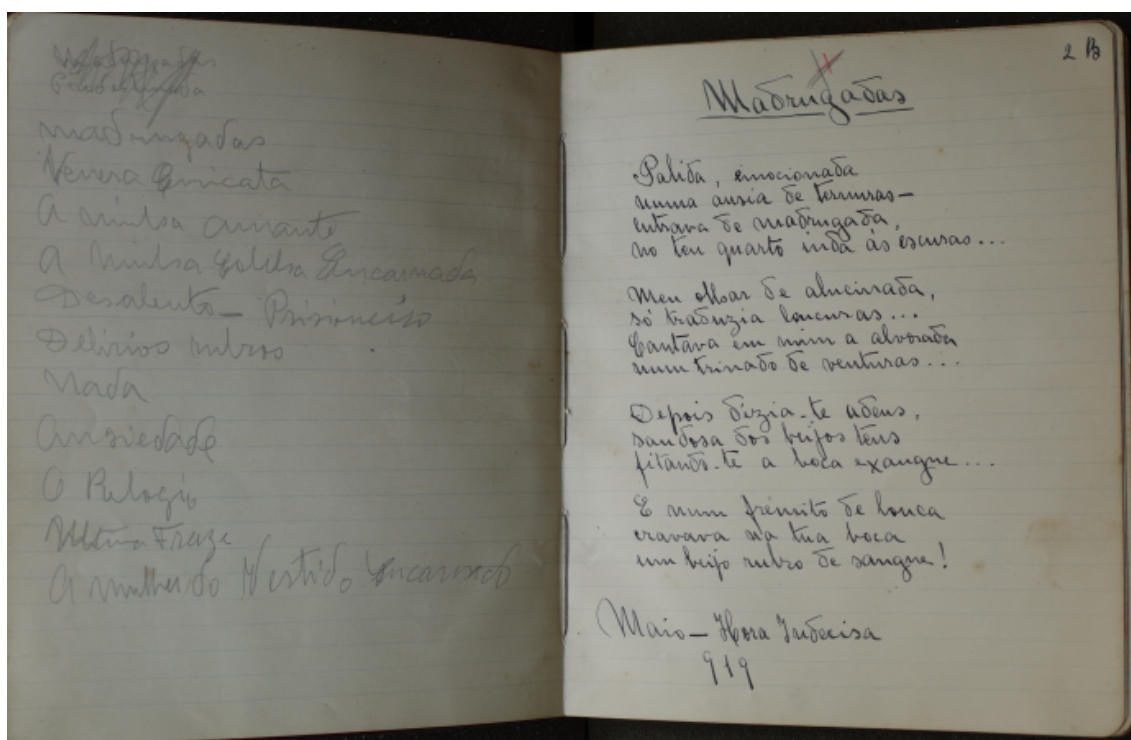 madrugadas
Venera
A minha amante
A minha Colcha Encarnada
Desalento — Prisioneiro
Delirios rubros
Nada
Ansiedade
O Relogio
Ultima Fraze
A mulher do Vestido Encarnado
2 B
Madrugadas
Palida, emocionada
numa ansia de ternuras —
entrava de madrugada,
no teu quarto inda ás escuras...
Meu olhar de alucinada,
só traduzia loucuras...
Cantava em mim a alvorada
num trinado de venturas...
Depois dizia-te adeus,
saudosa dos beijos teus
fitando-te a boca exangue...
E num frémito de louca
cravava na tua boca
um beijo rubro de sangue!
Maio — Hora Indecisa
919